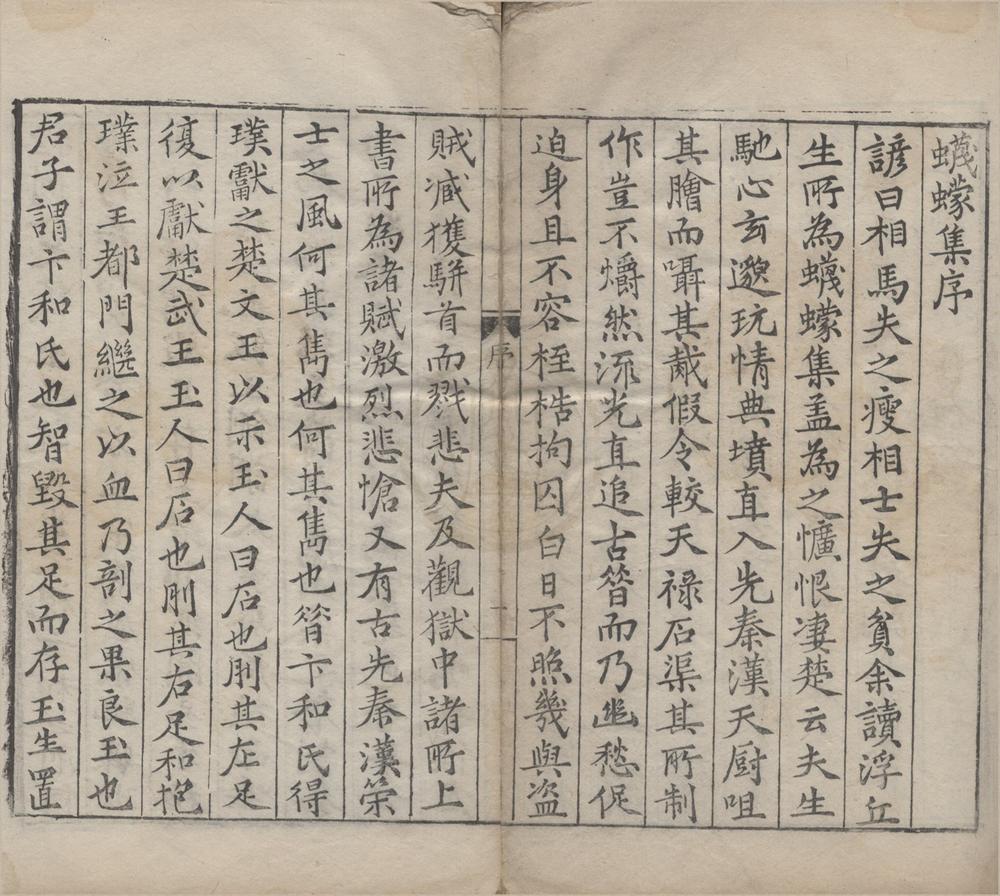 蠛蠓集序
諺曰相馬失之瘦相士失之貧余讀浮丘
生所為蠛蠓集盖為之懭悢凄楚云夫生
馳心玄邈玩情典墳直入先秦漢天厨咀
其膾而囁其胾假令較天禄石渠其所制
作豈不爝然流光直追古昝而乃幽愁促
迫身且不容桎梏拘囚白日不照幾與盗
序
一
賊减獲駢首而戮悲夫及觀獄中諸所上
書所為諸賦激烈悲愴又有古先秦漢策
士之風何其雋也何其雋也昝卞和氏得
璞獻之楚文王以示玉人曰石也刖其左足
復以獻楚武王玉人曰石也刖其右足和抱
璞泣王都門繼之以血乃剖之果良玉也
君子謂卞和氏也智毀其足而存玉生置